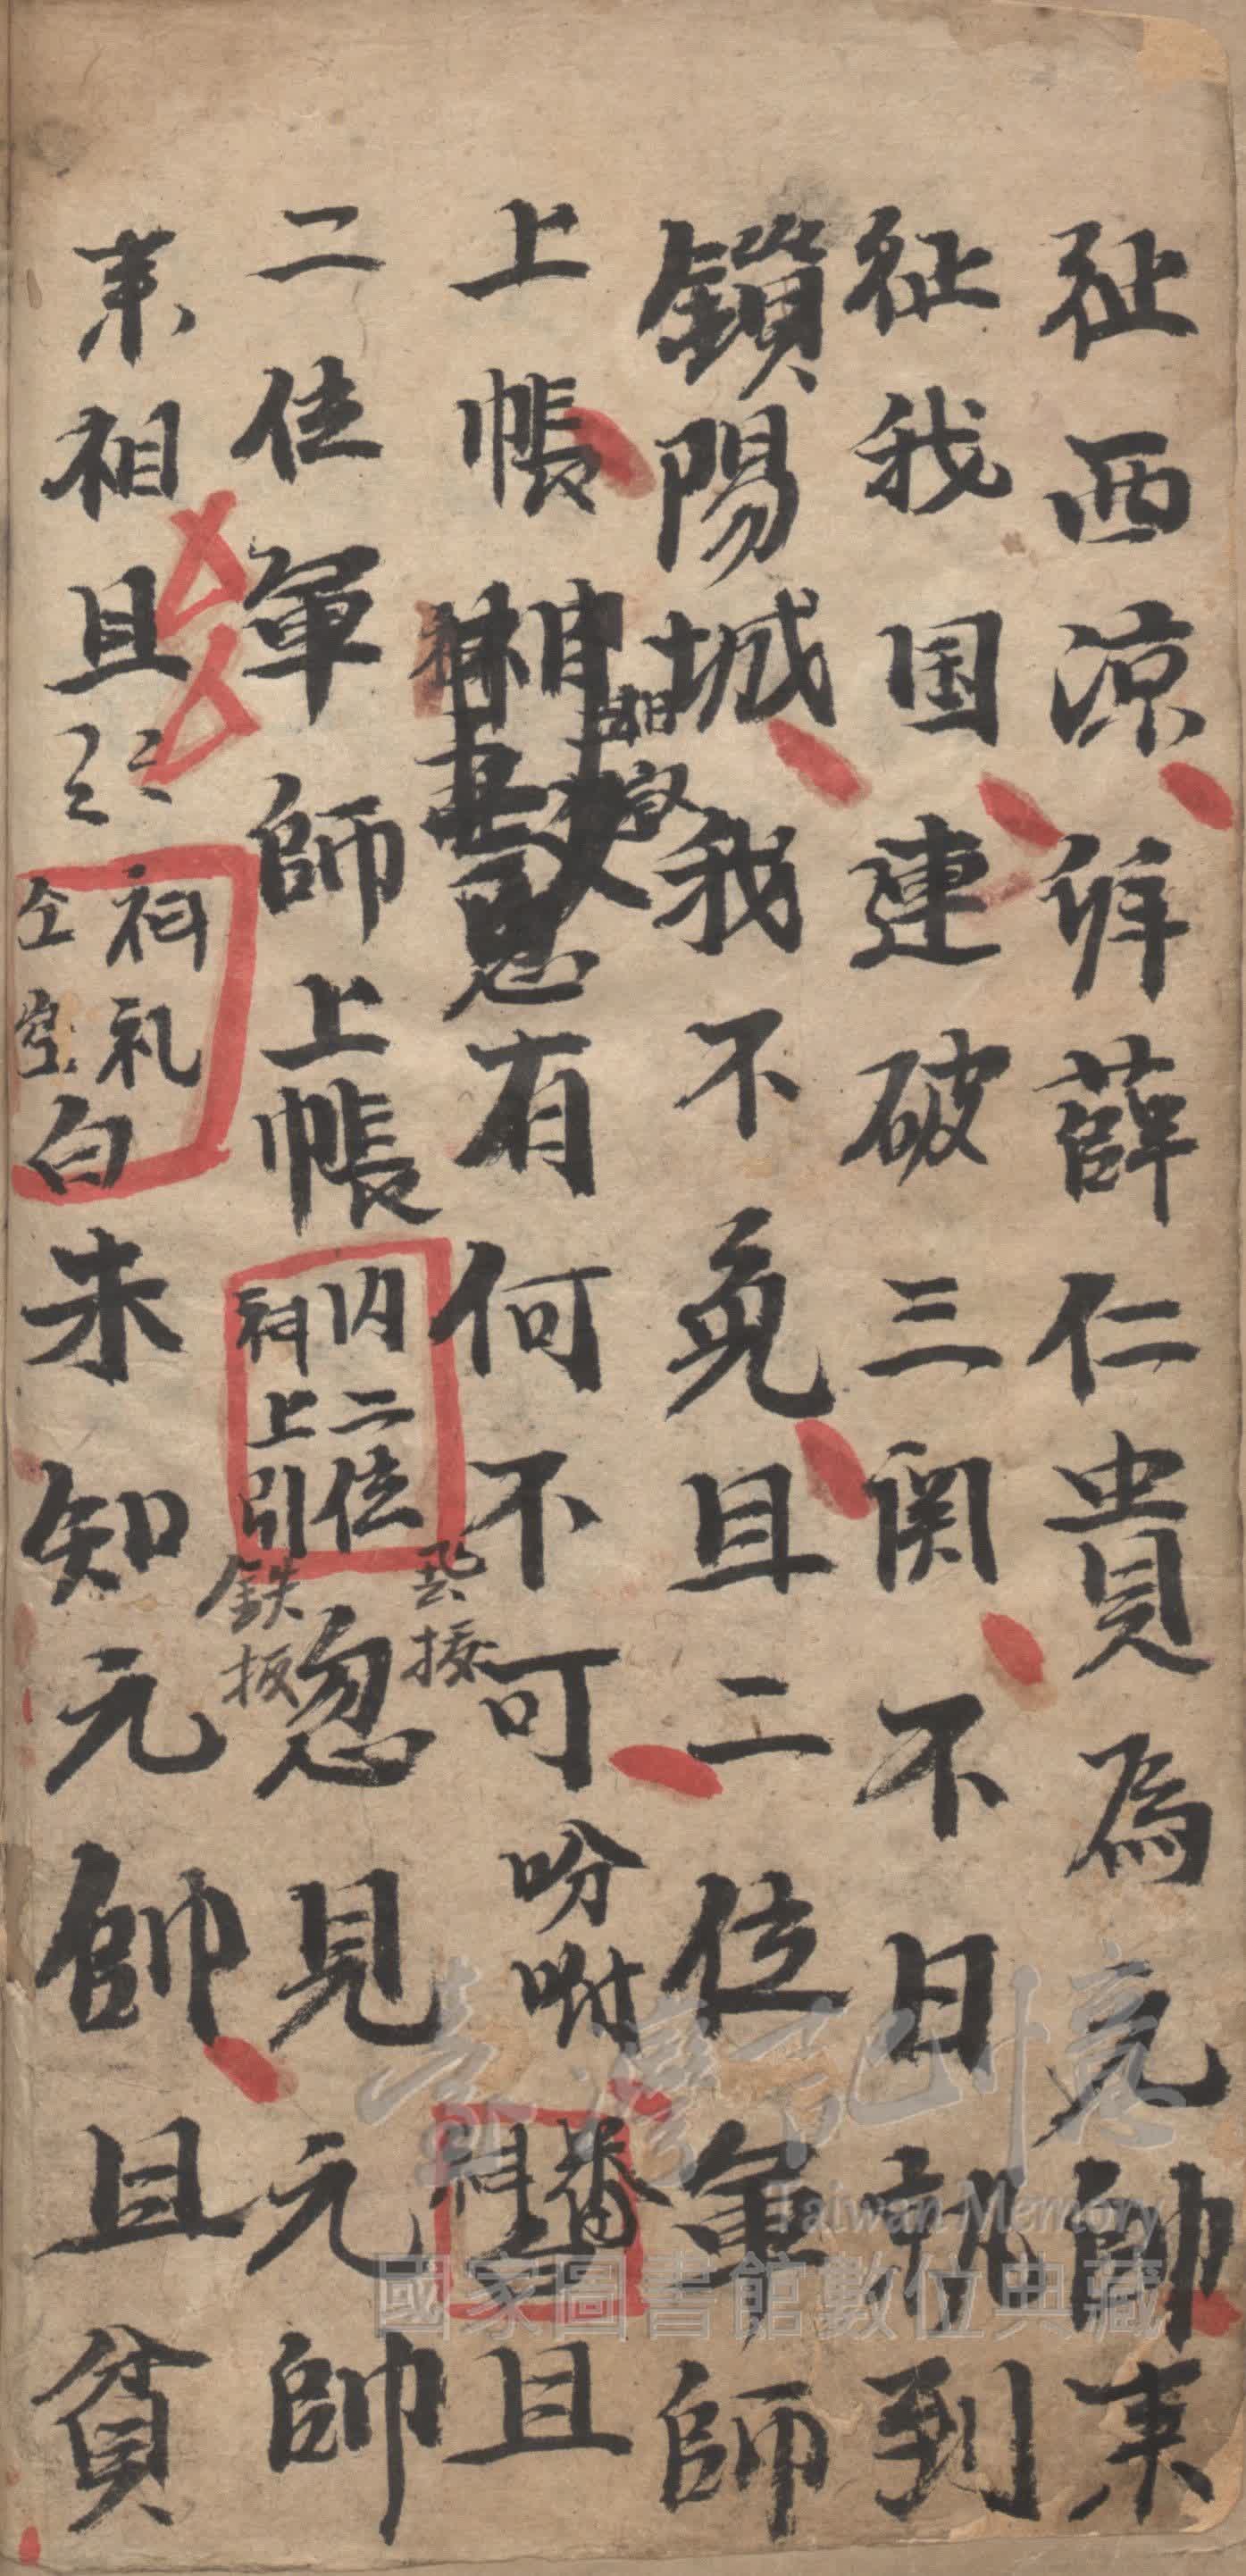 征西涼拜薛仁貴為元帥来
征我国連破三関不日就到
鎖陽城我不免且二位軍師
上帳
相议
有何不可吩咐
番
科
上
且
二位軍師上帳
内二位
科上引
鉄板
忽見元帥
来相且
科礼
白未知元帥且貧
臺灣記憶
Taiwan Memory
國家圖書館數位典藏